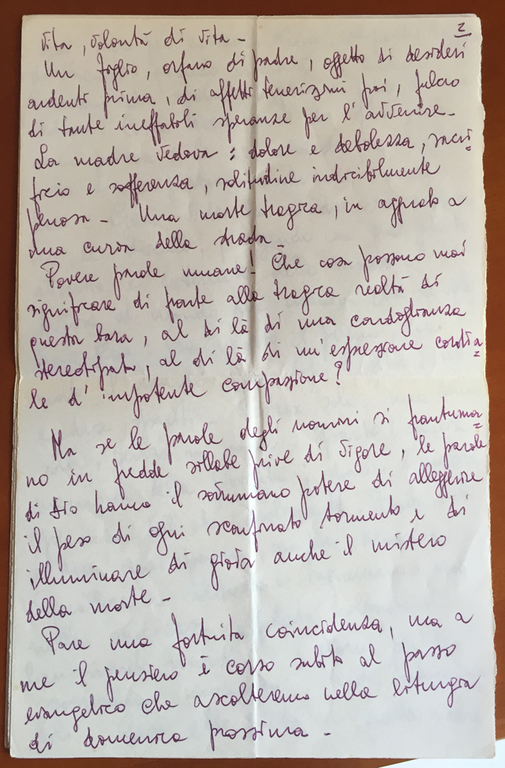 2
vita, volontà di vita –
Un figlio, orfano di padre, oggetto di desideri
ardenti prima, di affetti tenerissimi poi, fulcro
di tante ineffabili speranze per l'avvenire –
La madre vedova: dolore e debolezza, sacri=
ficio e sofferenza, solitudine indicibilmente
penosa – Una morte tragica, in agguato a
una curva della strada –
Povere parole umane! Che cosa possono mai
significare di fronte alla tragica realtà di
questa bara, al di là di una condoglianza
stereotipata, al di là di un'espressione cordia=
le d'impotente compassione?
Ma se le parole degli uomini si frantuma=
no in fredde sillabe prive di vigore, le parole
di Dio hanno il sovrumano potere di alleggerire
il peso di ogni sconfinato tormento e di
illuminare di gioia anche il mistero
della morte –
Pare una fortuita coincidenza, ma a
me il pensiero è corso subito al passo
evangelico che ascolteremo nella liturgia
di domenica prossima –